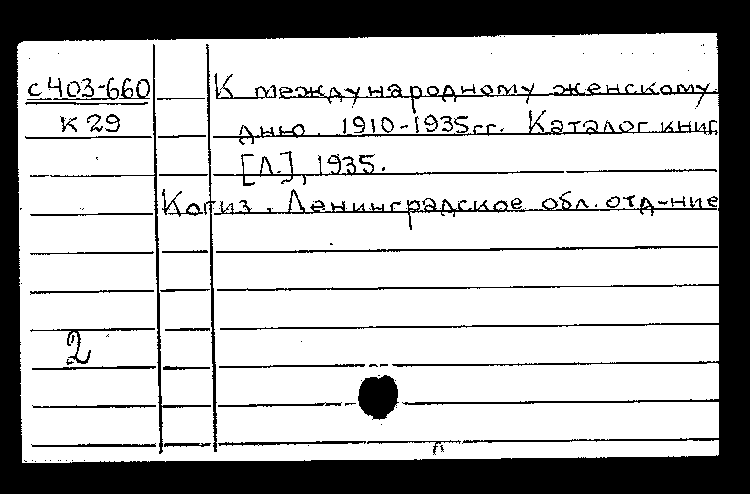 с403-660
К29
К международному женскому
дню. 1910-1935гг. Каталог книг
[Л.], 1935.
Когиз. Ленинградское обл. отд-ние
2
л